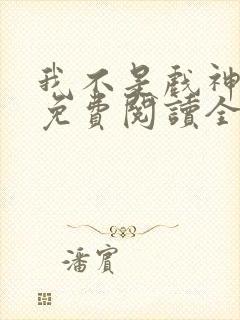 我不是戲神
免費閱讀全
潘賓